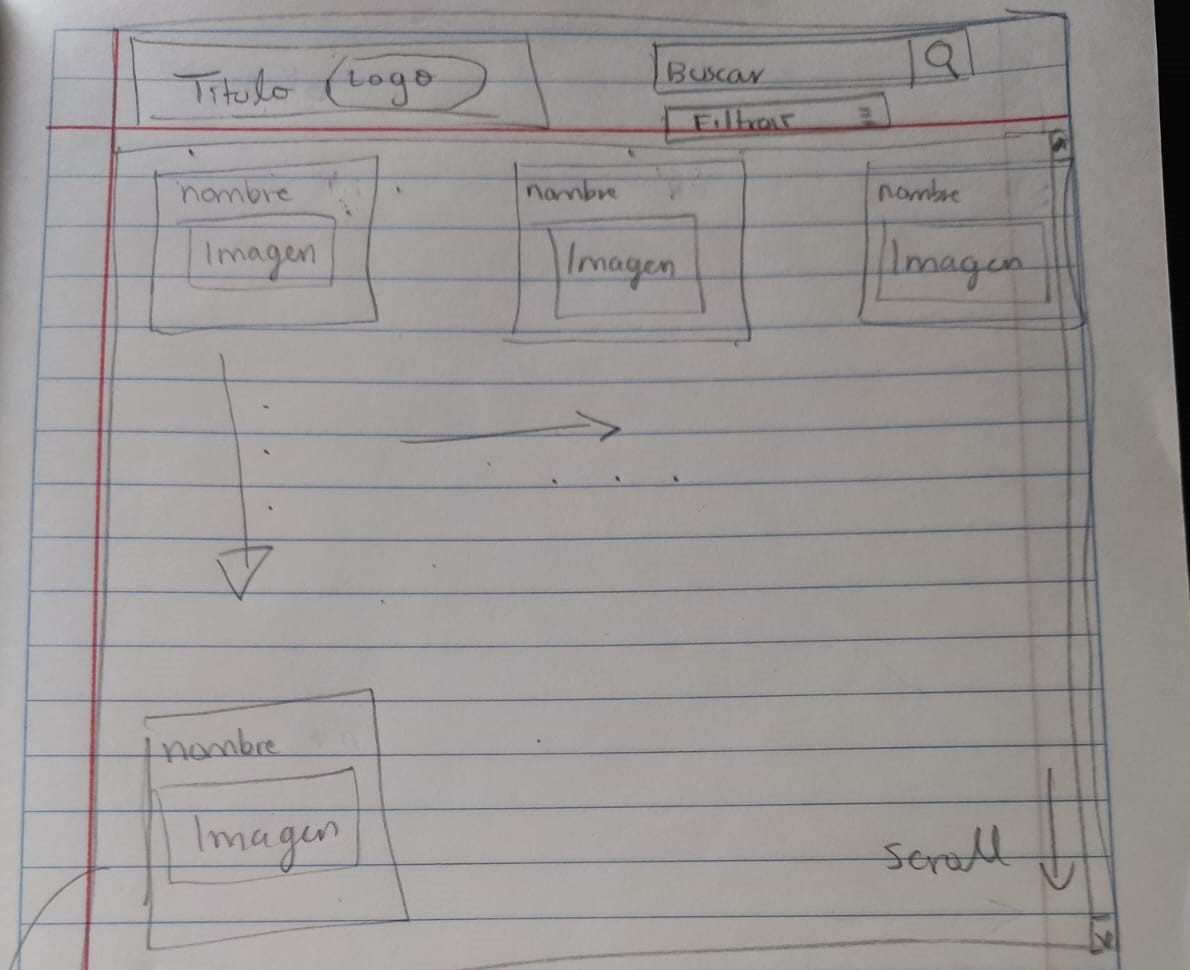 Titulo (Logo)
Buscar
Filtrar
nombre nombre nombre
Imagen Imagen Imagen
nombre
Imagen
scroll